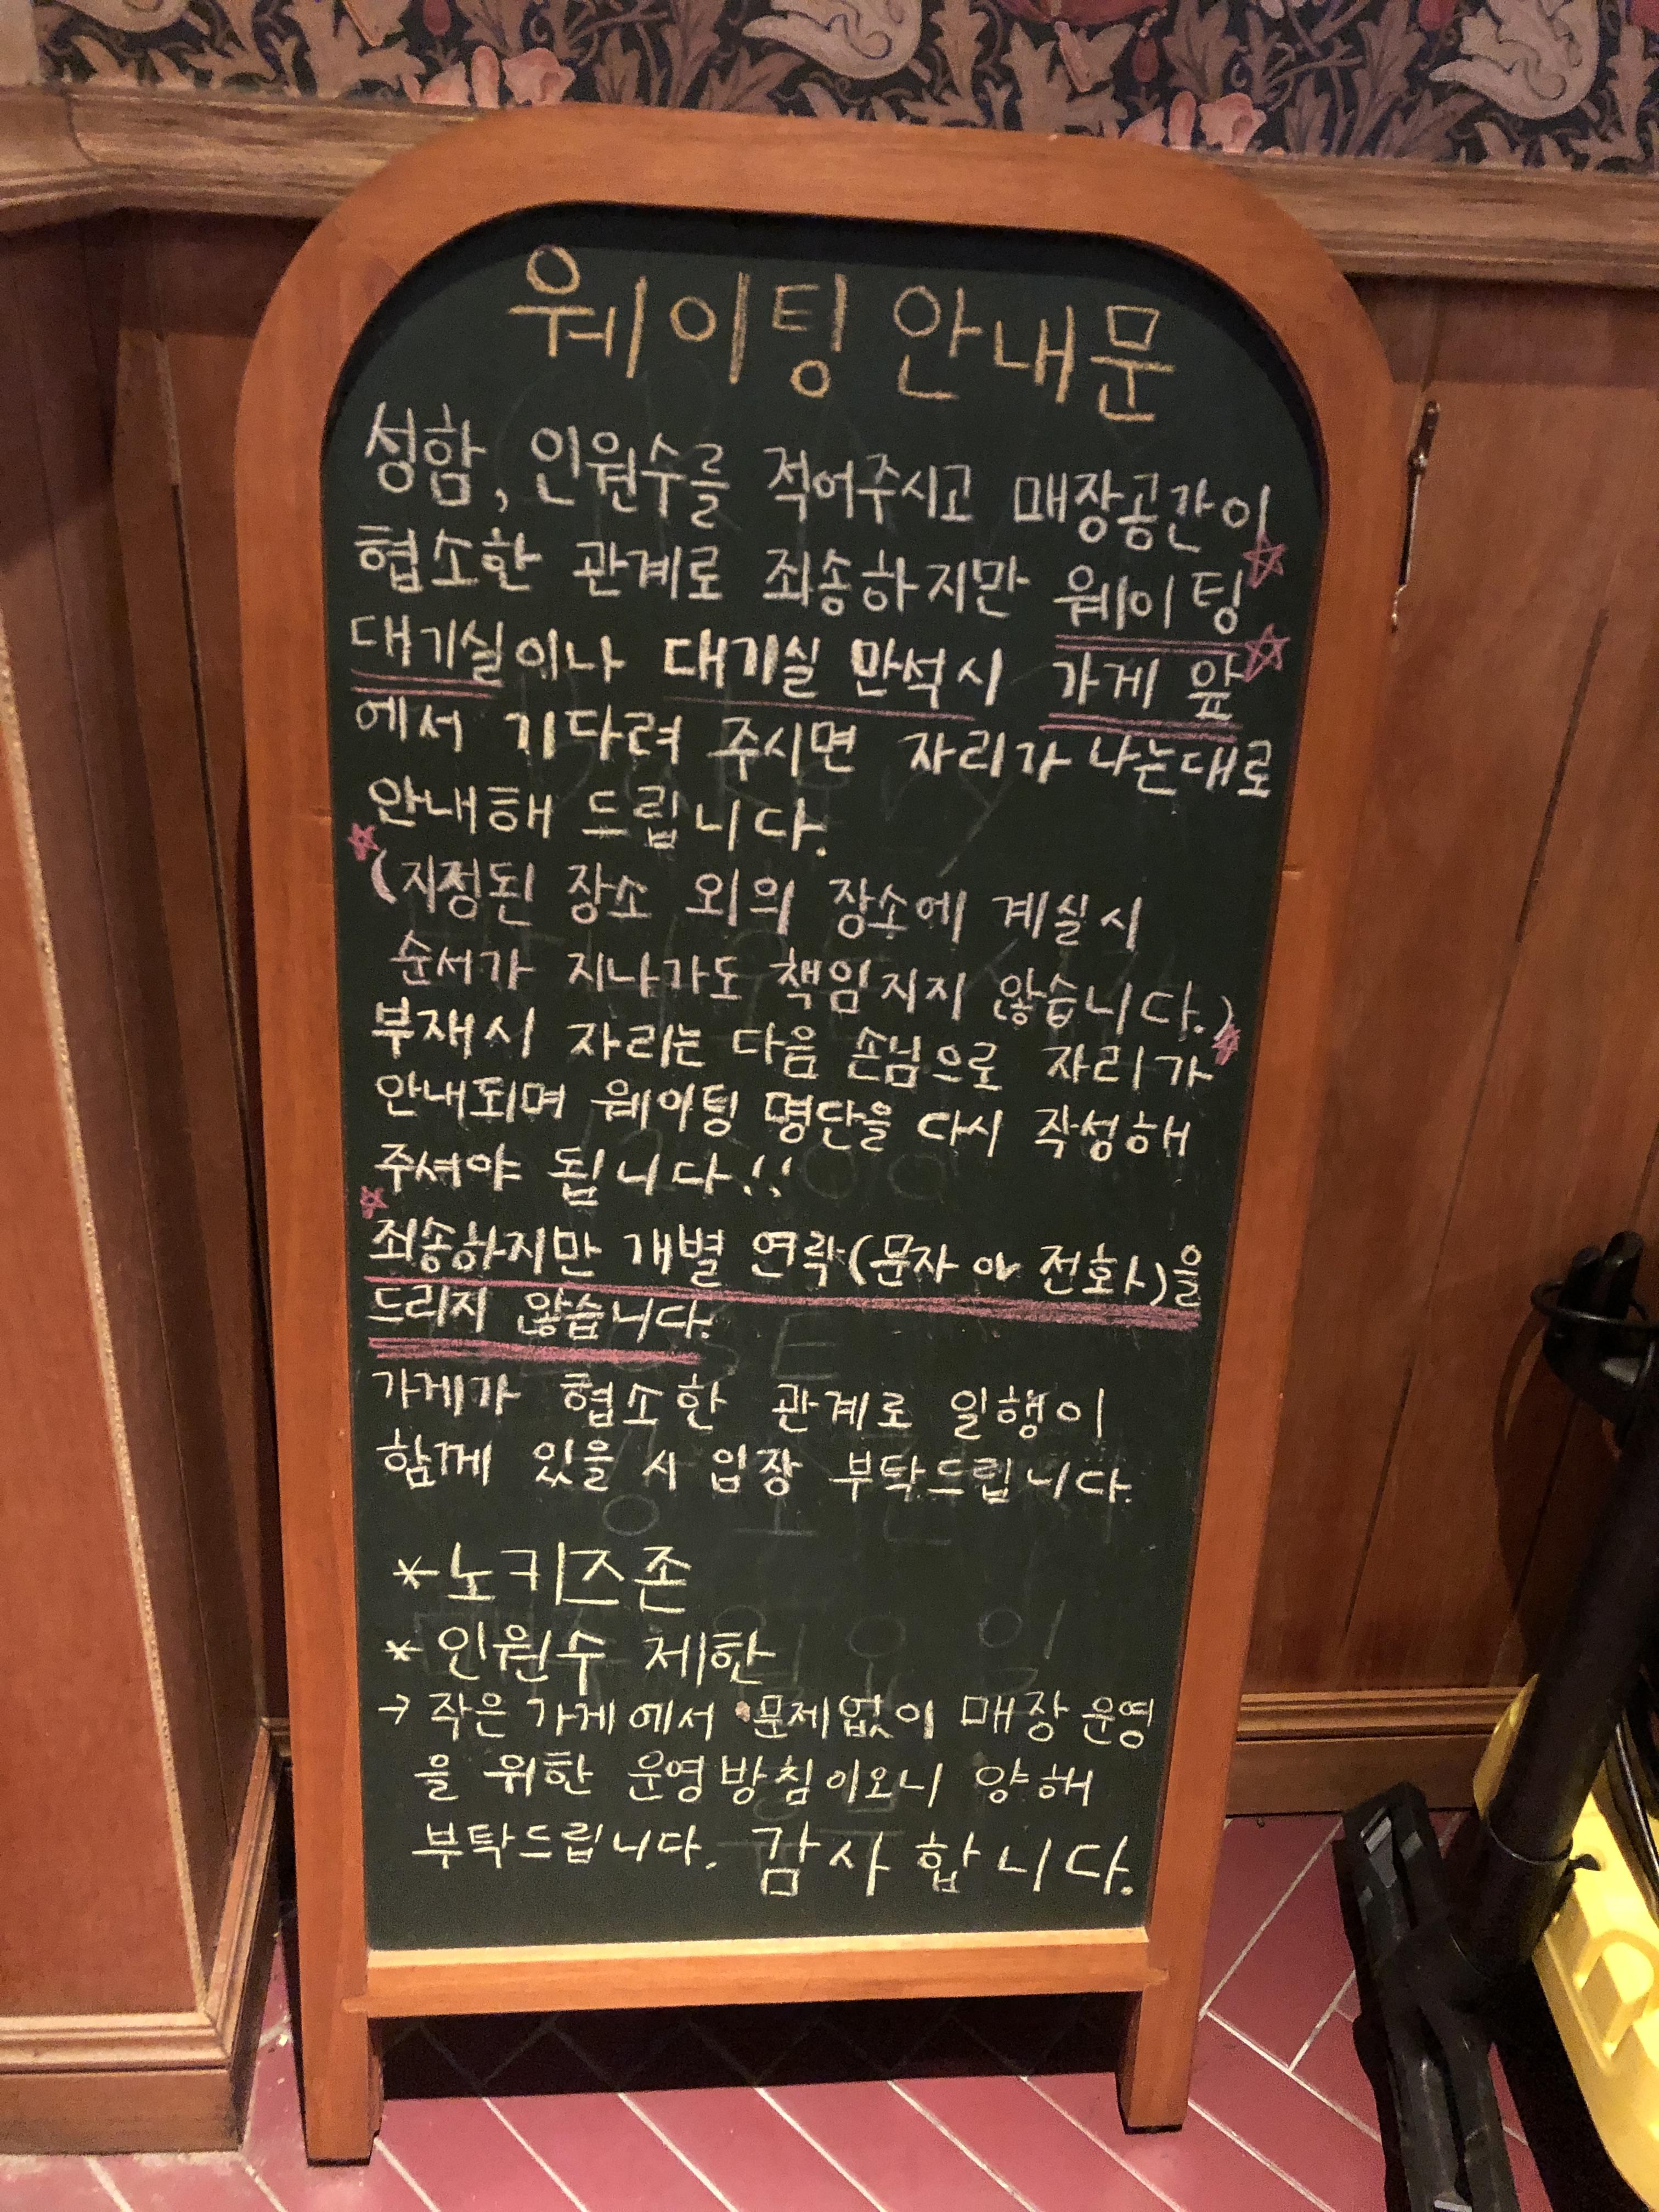 웨이팅 안내문
성함, 인원수를 적어주시고 매장공간이
협소한 관계로 죄송하지만 웨이팅
대기실이나 대기실 만석시 가게 앞
에서 기다려 주시면 자리가 나는대로
안내해 드립니다.
(지정된 장소 외의 장소에 계실시
순서가 지나가도 책임지지 않습니다.)
부재시 자리는 다음 손님으로 자리가
안내되며 웨이팅 명단을 다시 작성해
주셔야 됩니다!!
죄송하지만 개별 연락(문자 or 전화)을
드리지 않습니다.
가게가 협소한 관계로 일행이
함께 있을 시 입장 부탁드립니다.
*노키즈존
*인원수 제한
→ 작은 가게에서 문제없이 매장 운영
을 위한 운영방침이오니 양해
부탁드립니다. 감사합니다.